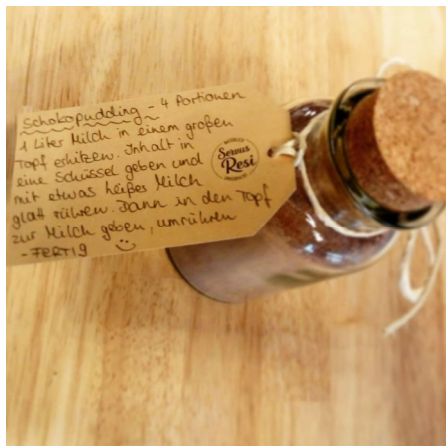 Schokopudding - 4 Portionen
1 Liter Milch in einem großen
Topf erhitzen. Inhalt in
eine Schüssel geben und
mit etwas heißer Milch
glatt rühren. Dann in den Topf
zur Milch geben, umrühren
- FERTIG
Servus
Resi